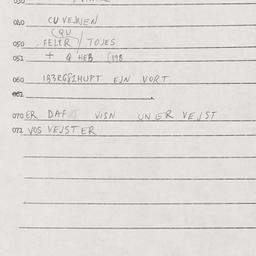 040 CU VEJNEN
(QU
050 FELER / TOJES
051 + Q HEB (198
060 1B3RG8IHUPT EJN VORT.
061
070 ER DAF VISN UN ER VEJST
071 VOS VEJST ER